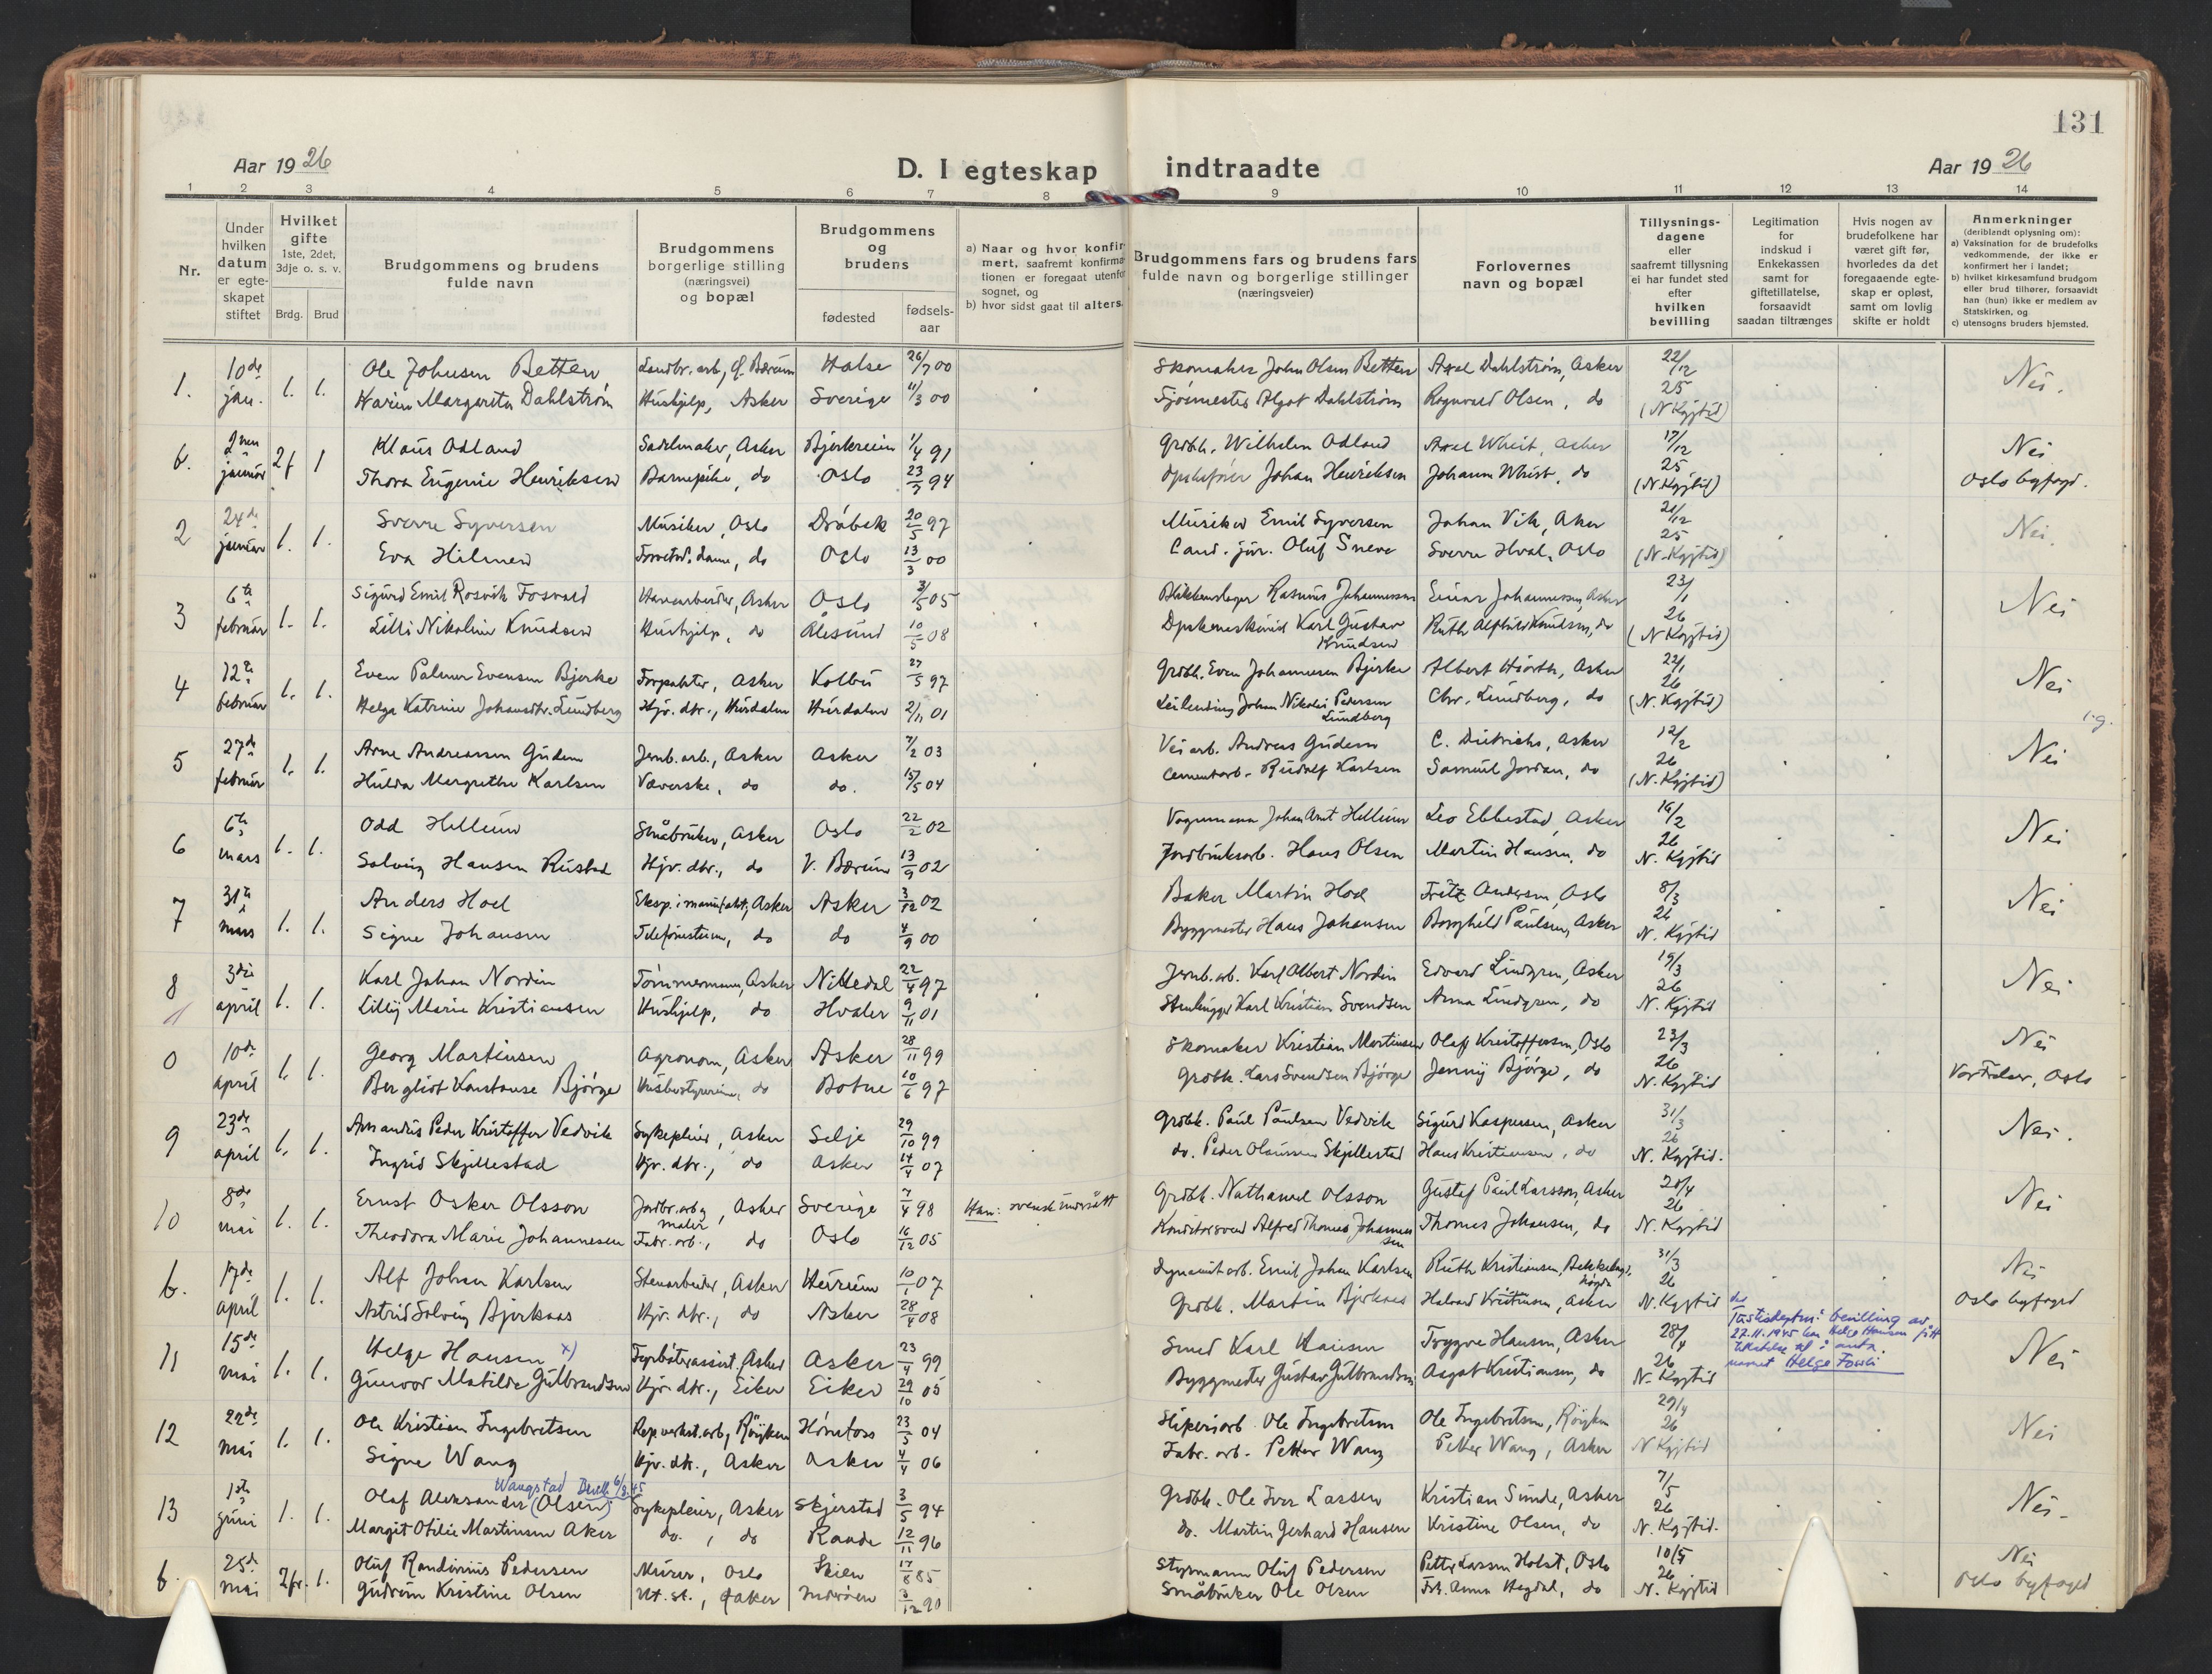 131
Aar 1926
D. I egteskap indtraadte
Aar 1926
1 2 3 4 5 6 7 8 9 10 11 12 13 14
Nr.
Under hvilken datum er egteskapet stiftet
Hvilket gifte 1ste, 2det, 3dje o. s. v.
Brdg. Brud
Brudgommens og brudens fulde navn
Brudgommens borgerlige stilling (næringsvei) og bopæl
Brudgommens og brudens
fødested
fødsels-aar
a) Naar og hvor konfirmert, saafremt konfirmationen er foregaat utenfor sognet, og
b) hvor sidst gaat til alters.
Brudgommens fars og brudens fars fulde navn og borgerlige stillinger (næringsveier)
Forlovernes navn og bopæl
Tillysnings-dagene eller saafremt tillysning ei har fundet sted efter hvilken bevilling
Legitimation for indskud i Enkekassen samt for giftetillatelse, forsaavidt saadan tiltrænges
Hvis nogen av brudefolkene har været gift før, hvorledes da det foregaaende egteskap er opløst, samt om lovlig skifte er holdt
Anmerkninger (deriblandt oplysning om):
a) Vaksination for de brudefolks vedkommende, der ikke er konfirmert her i landet;
b) hvilket kirkesamfund brudgom eller brud tilhører, forsaavidt han (hun) ikke er medlem av Statskirken, og
c) utensogns bruders hjemsted.
1. 10de jan. 1. 1. Ole Johnsen Betten Landbr. arb, Ø. Bærum Halse 26/7 00 Skomaker John Olsen Betten Axel Dahlström, Asker 22/12 25 (N. Kgjtid) Nei.
Karin Margareta Dahlström Hushjelp, Asker Sverige 11/3 00 Algot Dahlström Ragnvald Olsen, do
b. 2nen januar 2f 1 Klaus Odland Sadelmaker, Asker Bjerkreim 1/4 91 Grdbr. Wilhelm Odland Axel Whist, Asker 17/12 25 (N. Kgjtid) Nei
Thora Eugenie Henriksen Barnepike, do Oslo 23/7 94 Johan Henriksen Johanna Whist, do Oslo byfogd.
2 24de januar 1. 1. Sverre Syversen Musiker, Oslo Drøbak 20/5 97 Musiker Emil Syversen Johan Vik, Aker 21/12 25 (N. Kgjtid) Nei.
Eva Hilmen do Oslo 13/3 00 Cand. jur. Oluf Sneve Sverre Hval, Oslo
3 6te februar 1. 1. Sigurd Emil Rosvik Fosvold Havearbeider, Asker Oslo 3/5 05 Rasmus Johannessen Einar Johannessen, Asker 23/1 26 (N. Kgjtid) Nei
Lilli Nikoline Knudsen Hushjelp, do Ålesund 10/5 08 Karl Gustav Knudsen Ruth Alfhild Knudsen, do
4 12te februar 1. 1. Even Palmer Evensen Bjerke Forpakter, Asker Kolbu 27/5 97 Grdbr. Even Johannesen Bjerke Albert Hiorth, Asker 22/1 26 (N. Kgjtid) Nei
Helga Katrine Johansdtr. Lundberg Hjv. dtr., Hurdalen Hurdalen 2/11 01 Leilending Johan Nikolai Pedersen Lundberg Chr. Lundberg, do
5 27de februar 1. 1. Arne Andreassen Gudem Jernb. arb., Asker Asker 7/2 03 Vei arb. Andreas Gudem C. Dietrichs, Asker 12/2 26 (N. Kgjtid) Nei
Hulda Margrethe Karlsen Væverske, do do. 15/5 04 Cementarb. Rudolf Karlsen Samuel Jordan, do
6 6te mars 1. 1. Odd Hellum Småbruker, Asker Oslo 22/2 02 Vognmann Johan Arnt Hellum Leo Ebbestad, Asker 16/2 26 N. Kgjtid Nei
Solveig Hansen Rustad Hjv. dtr., do V. Bærum 13/9 02 Jordbruksarb. Hans Olsen Martin Hansen, do
7 31te mars 1. 1. Anders Hoel Eksp. i manufakt., Asker Asker 3/12 02 Baker Martin Hoel Fritz Andersen, Oslo 8/3 26 N. Kgjtid Nei
Signe Johansen Telefonistinne, do do 4/9 00 Byggmester Hans Johansen Borghild Paulsen, Asker
8 3dje april 1. 1. Karl Johan Nordin Tømmermann, Asker Nittedal 22/4 97 Jernb. arb. Karl Albert Nordin Edvard Lindgren, Asker 19/3 26 N. Kgjtid Nei
Lilly Marie Kristiansen Hushjelp, do Hvaler 9/11 01 Stenhugger Karl Kristian Svendsen Anna Lindgren, do
0 10de april 1. 1. Georg Martinsen Agronom, Asker Asker 28/11 99 Skomaker Kristian Martinsen Olaf Kristoffersen, Oslo 23/3 26 N. Kgjtid Nei
Bergliot Konstanse Bjørge Husbestyrerinne, do Botne 10/6 97 Grdbr. Lars Svendsen Bjørge Jenny Bjørge, do Vor Frelser, Oslo
9 23de april 1. 1. Amandus Peder Kristoffer Vedvik Sykepleier, Asker Selje 29/10 99 Grdbr. Paul Paulsen Vedvik Sigurd Kaspersen, Asker 31/3 26 N. Kgjtid. Nei.
Ingrid Skjillestad Hjv. dtr., do Asker 14/4 07 do. Peder Olaussen Skjillestad Hans Kristiansen, do
10 8de mai 1. 1. Ernst Oskar Olsson Jordbr. arb og maler, Asker Sverige 7/4 98 Han: svensk undersått Grdbr. Nathanael Olsson Gustaf Paul Larsson, Asker 20/4 26 N. Kgjtid Nei
Theodora Marie Johannesen Fabr. arb., do Oslo 16/12 05 Konditorsvend Alfred Thomas Johannessen Thomas Johansen, do
b. 17de april 1. 1. Alf Johan Karlsen Stenarbeider, Asker Hurum 10/1 07 Dynamitarb. Emil Johan Karlsen Ruth Kristiansen, 31/3 26 N. Kgjtid Nei
Astrid Solveig Bjerknes Hjv. dtr., do Asker 28/4 08 Grdbr. Martin Bjerknes Halvard Kristiansen, Asker Oslo byfogd
11 15de mai 1. 1. Helge Hansen x) Fyrbøterassist. Asker Asker 23/4 99 Smed Karl Hansen Trygve Hansen, Asker 28/4 26 N. Kgjtid Nei
Gunvor Matilde Gulbrandsen Hjv. dtr., Eiker Eiker 29/10 05 Byggmester Gustav Gulbrandsen Aagot Kristiansen, do
Justisdeptm. i bevilling av 27.11.1945 har Helge Hansen fått tillatelse til å anta navnet Helge Fossli
12 22de mai 1. 1. Ole Kristian Ingebretsen Rep. verkst. arb, Røyken Hønefoss 23/5 04 Sliperiarb. Ole Ingebretsen Ole Ingebretsen, Røyken 29/4 26 N. Kgjtid Nei
Signe Wang Hjv. dtr., Asker Asker 4/4 06 Fabr. arb. Petter Wang Petter Wang, Asker
Wangstad Bevill. 6/8.45
13 1ste juni 1. 1. Olaf Aleksander (Olsen) Sykepleier, Asker Skjerstad 3/5 94 Grdbr. Ole Iver Lassen Kristian Sunde, Asker 7/5 26 N. Kgjtid. Nei.
Margit Otilie Martinsen Aker do., do Raade 12/11 96 do. Martin Gerhard Hansen Kristine Olsen, do
b. 25de mai 2fr. 1. Oluf Randinius Pedersen Murer, Oslo Skien 17/6 85 Styrmann Oluf Pedersen Petter Larsen Holst, Oslo 10/5 26 N. Kgjtid Nei
Gudrun Kristine Olsen Ut. st., Asker Inderøen 3/12 90 Småbruker Ole Olsen Frk. Anna Hegdal, do Oslo byfogd